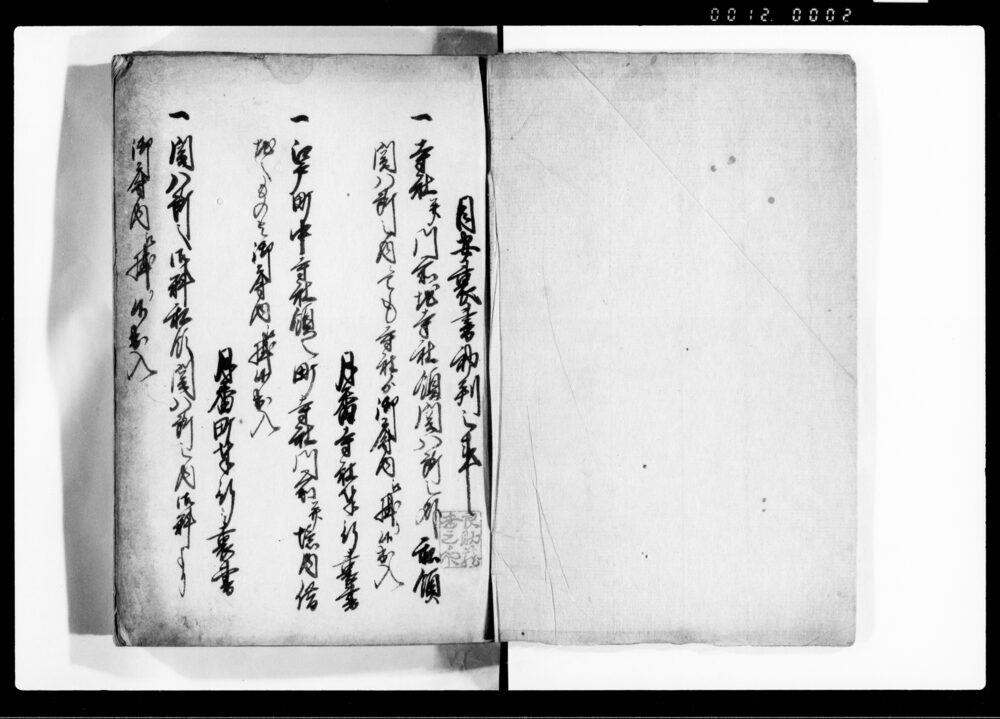 0012. 0002
目安裏書初判之事
一寺社并門前地寺社領関八州之外私領
関八州之内ニても寺社より御府内江掛り候出入
月番寺社奉行裏書
一江戸町中寺社領之町寺社門前并境内借
地之もの共御府内江掛り候出入
月番町奉行裏書
一関八州之御料私領関八州之内御料より
御府内江掛り候出入